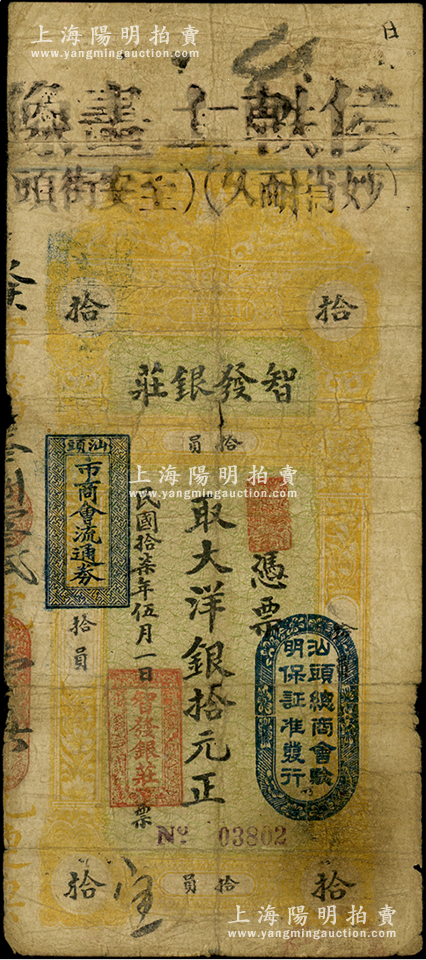 上海陽明拍賣
www.yangmingauction.com
侯執士書像
(妙肖耐久)(至安街頭
拾 拾
智發銀莊
拾員
上海陽明拍賣
www.yangmingauction.com
憑票
取大洋銀拾元正
民國拾柒年伍月一日
智發銀莊
票
汕頭
市商會流通券
拾員
汕頭總商會驗
明保証准發行
No 03802
拾 拾員 拾
上海陽明拍賣
www.yangmingauction.com